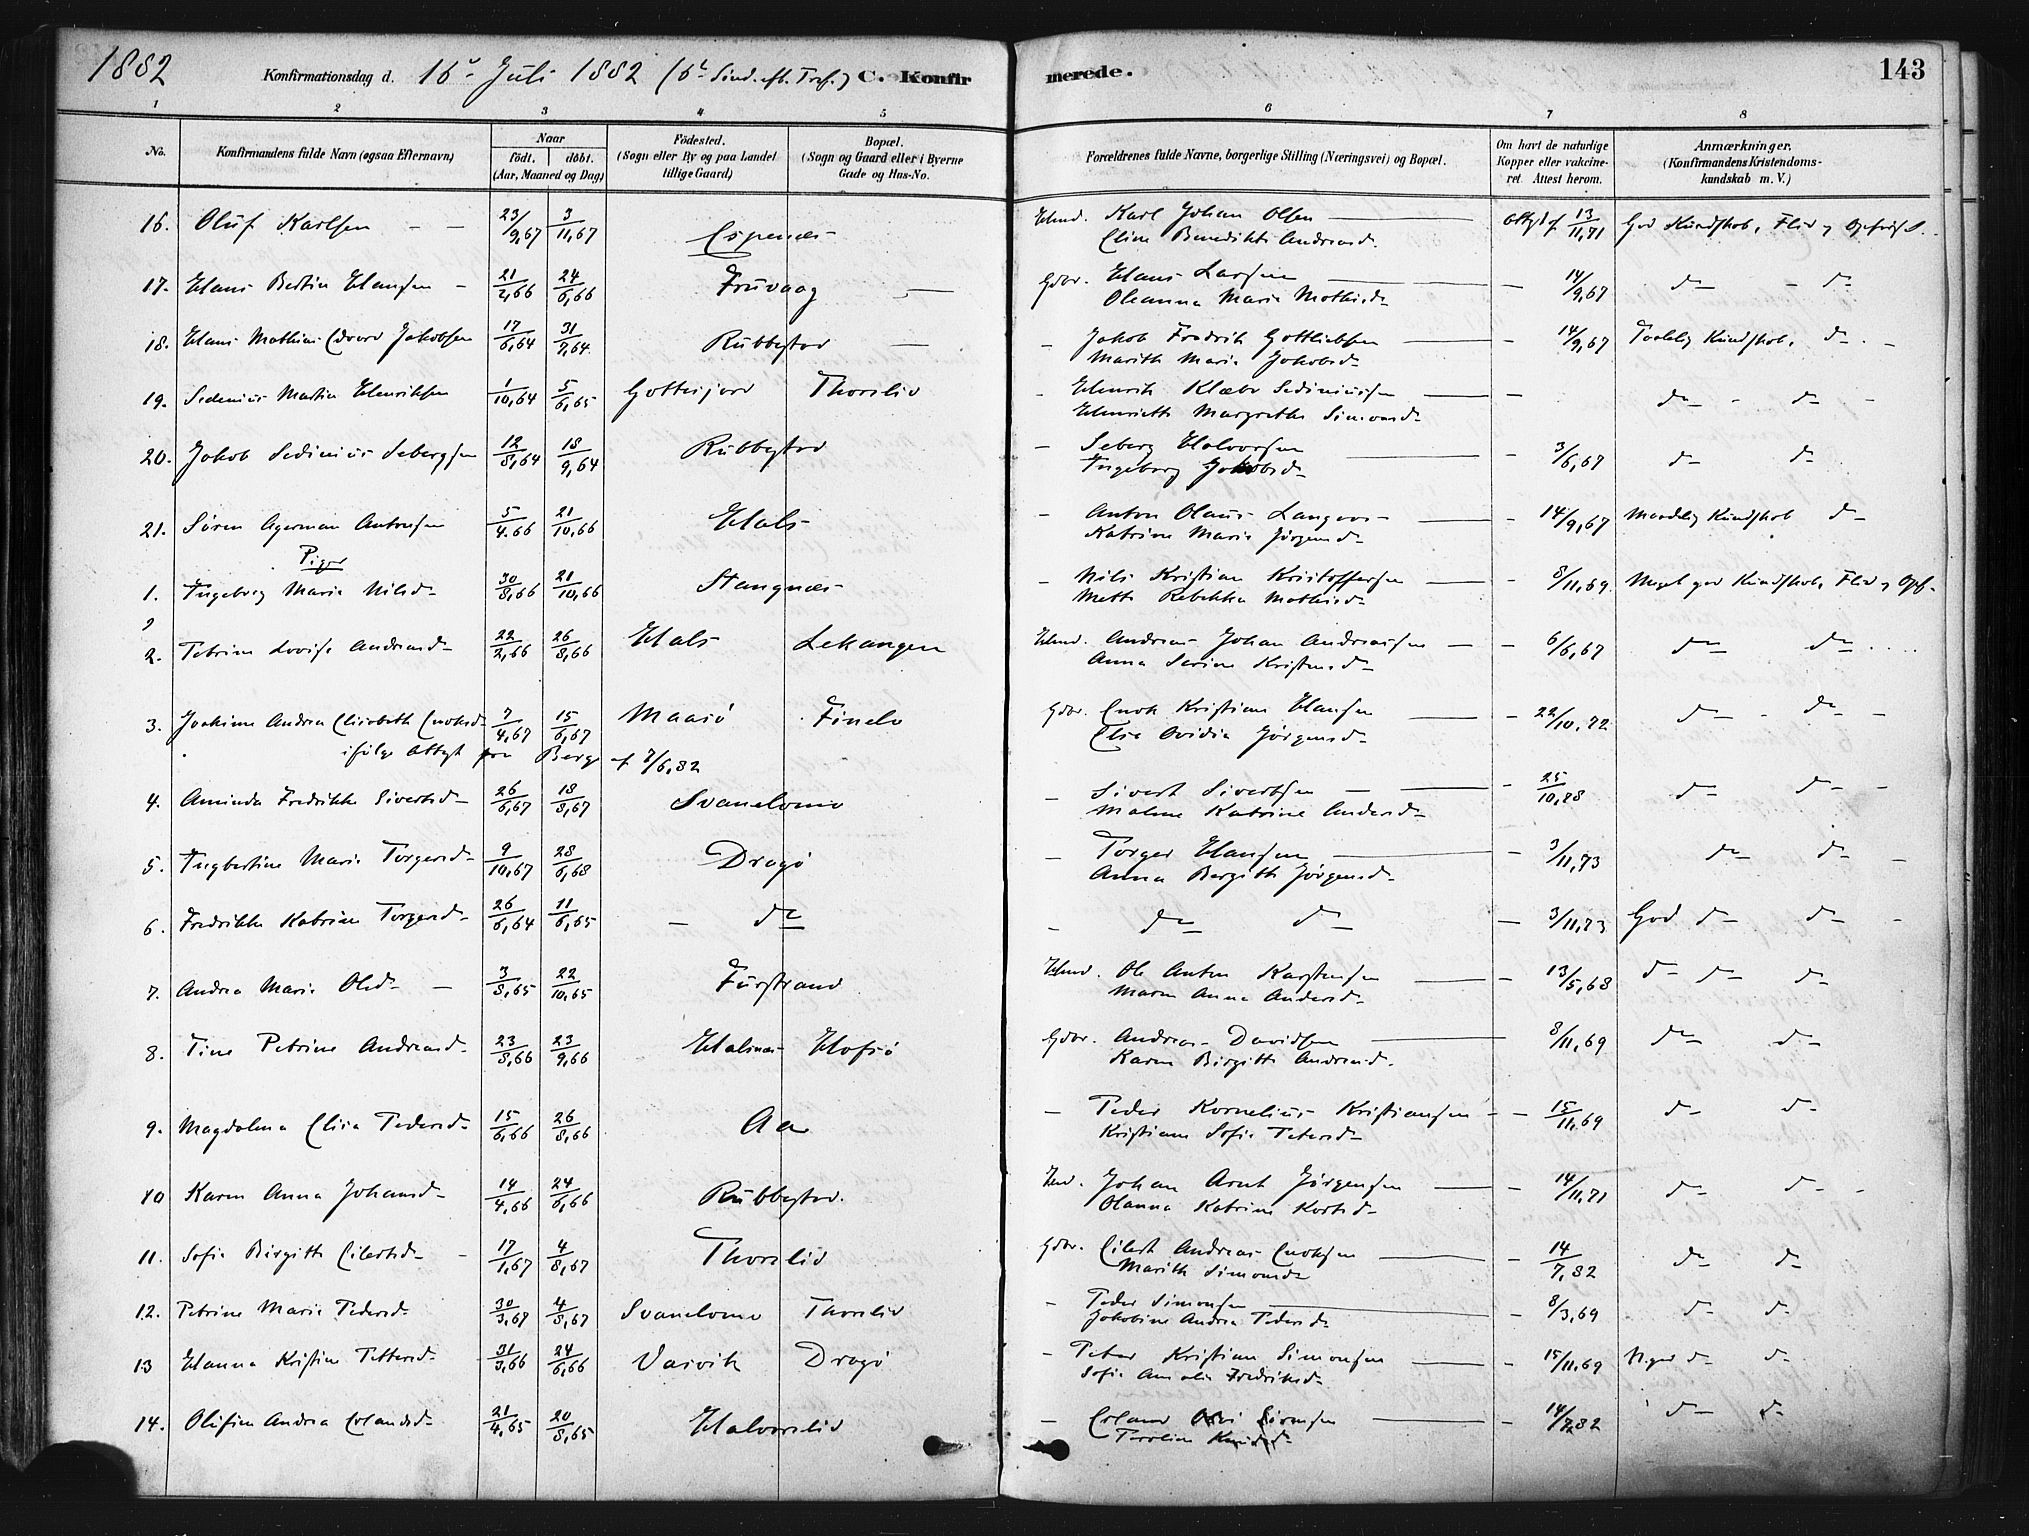 1882 Konfirmationsdag d. 16de Juli 1882 (6te Sønd. eft. Tref.) C. Konfirmerede. 143
1 2 3 4 5 6 7 8
No. Konfirmandens fulde Navn (ogsaa Efternavn) Naar Födested. Bopæl. Forældrenes fulde Navne, borgerlige Stilling (Næringsvei) og Bopæl. Om havt de naturlige Anmærkninger.
födt. döbt. (Sogn eller By og paa Landet (Sogn og Gaard eller i Byerne Kopper eller vakcine- (Konfirmandens Kristendoms-
(Aar, Maaned og Dag) tillige Gaard) Gade og Hus-No. ret. Attest herom. kundskab m. V.)
16. Oluf Karlsen - - 23/9,67 3/11,67 Espenæs Hmd. Karl Johan Olsen Attest af 13/11,71 God Kundskab, Flid og Opførsel.
Eline Benedikte Andreasd.
17. Hans Bertin Hansen - 21/2,66 24/6,66 Fruvaag — Gdbr. Hans Larsen — 14/9,67 do - do
Oleanna Maria Mathisd.
18. Hans Mathias Edvard Jakobsen 17/6,64 31/7,64 Rubbestad — - Jakob Fredrik Gottliebsen — 14/9,67 Taalelig Kundskab, do -
Marith Maria Jakobsd.
19. Sedenius Martin Henriksen 1/10,64 5/6,65 Gottesjord Thorslid - Henrik Klæbo Sedeniussen — do - do -
Henriette Margrethe Simonsd.
20. Jakob Sedenius Sebergsen 12/8,64 18/9,64 Rubbestad - Seberg Halvorsen — 3/6,67 do do
Ingeborg Jakobsd.
21. Søren Agerman Antonsen 5/4,66 21/10,66 Hals - Anton Olaus — 14/9,67 Maadelig Kundskab do
Katrine Maria Jørgensd.
Piger
1. Ingeborg Maria Nilsd. 30/8,66 21/10,66 Stangnæs - Nils Kristian Kristoffersen — 8/11,69 Meget god Kundskab, Flid og Opf.
Mette Rebekka Mathisd.
2. Petrine Lovise Andreasd. 22/2,66 26/8,66 Hals Lekangen Hmd. Andreas Johan Andreassen — 6/6,67 do do
Anna Serine Kristensd.
3. Joakime Andrea Elisabeth Enoksd. 7/4,67 15/6,67 Maasø Finelv Gdbr. Enok Kristian Hansen — 22/10,72 do - do -
ifølge Attest fra Berg af 7/6,82 Elen Ovidia Jørgensd.
4. Aminda Fredrikke Sivertsd. 26/6,67 18/8,67 Svanelvmo - Sivert Sivertsen — 25/10,88 do do -
Malene Katrine Andersd.
5. Ingbertine Maria Torgersd. 9/10,67 28/6,68 Dragø - Torger Hansen — 3/11,73 do do -
Anna Bergitte Jørgensd.
6. Fredrikke Katrine Torgersd. 26/6,64 11/6,65 - do - do do — 3/11,73 God do do -
7. Andrea Maria Olsd. — 3/8,65 22/10,65 Furstrand Hmd. Ole Anton Karstensen — 13/5,68 do do do
Maren Anna Andersd.
8. Tine Petrine Andreasd. 23/8,66 23/9,66 Halsnæs Hofsø Gdbr. Andreas Davidsen — 8/11,69 do do
Karen Birgitte Andreasd.
9. Magdalena Elisa Pedersd. 15/6,66 26/8,66 Aa - Peder Kornelius Kristiansen - - 15/11,69 do do
Kristiane Sofie Petersd.
10 Karen Anna Johansd. 14/4,66 24/6,66 Rubbestad. Hmd. Johan Arnt Jørgensen — 14/11,71 do do -
Olanna Katrine Kortsd.
11. Sofie Birgitte Eilertsd. - 17/1,67 4/8,67 Thorslid Gdbr. Eilert Andreas Enoksen — 14/7,82 do do
Marith Simonsd.
12. Petrine Maria Pedersd. 30/3,67 4/8,67 Svanelvmo Thorslid - Peder Simonsen — 8/3,69 do do
Jakobine Andrea Pedersd.
13 Hanna Kristine Pettersd. 31/3,66 24/6,66 Vasvik Dragø - Peter Kristian Simonsen — 15/11,69 Nogen do do
Sofie Amalia Fredriksd.
14. Olufine Andrea Erlandsd. 21/4,65 20/8,65 Halvorslid - Erland — 14/7,82 do do